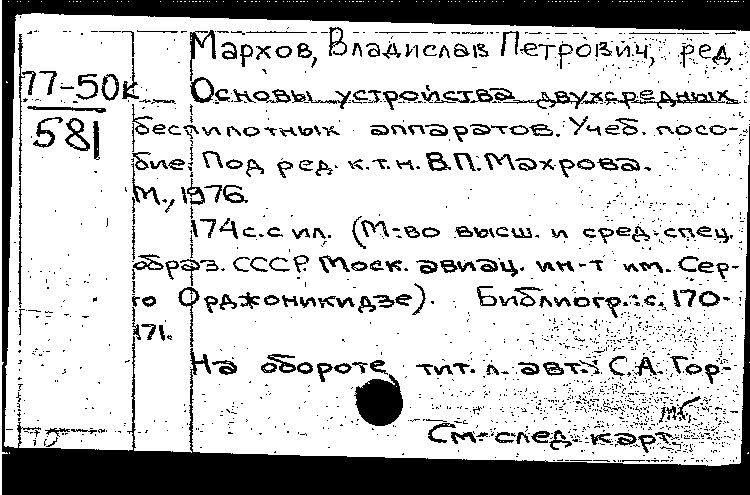 Мархов, Владислав Петрович, ред.
77-50к
581
Основы устройства двухсредных
беспилотных аппаратов. Учеб. посо-
бие. Под ред. к.т.н. В.П. Махрова.
М., 1976.
174 с. с ил. (М-во высш. и сред. спец.
образ. СССР. Моск. авиац. ин-т им. Сер-
го Орджоникидзе). Библиогр.: с. 170-
171.
На обороте тит. л. авт.: С.А. Гор-
См. след. карт.